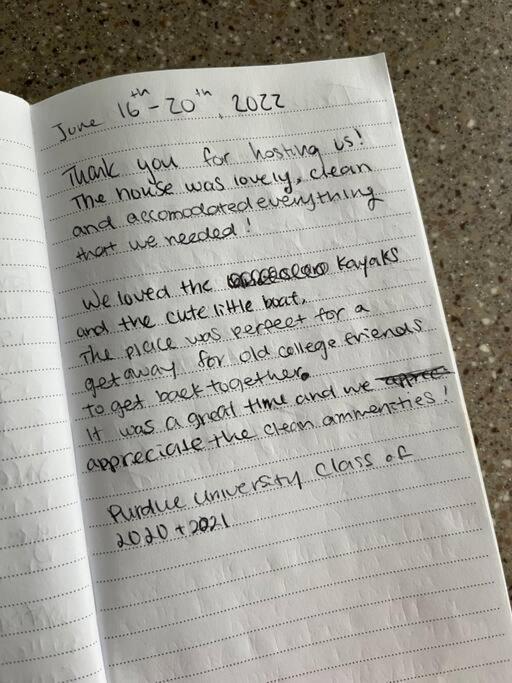 June 16th - 20th, 2022
Thank you for hosting us!
The house was lovely, clean
and accomodated everything
that we needed!
We loved the kayaks
and the cute little boat.
The place was perfect for a
get away for old college friends
to get back together.
It was a great time and we appree
appreciate the clean ammenities!
Purdue University Class of
2020 + 2021